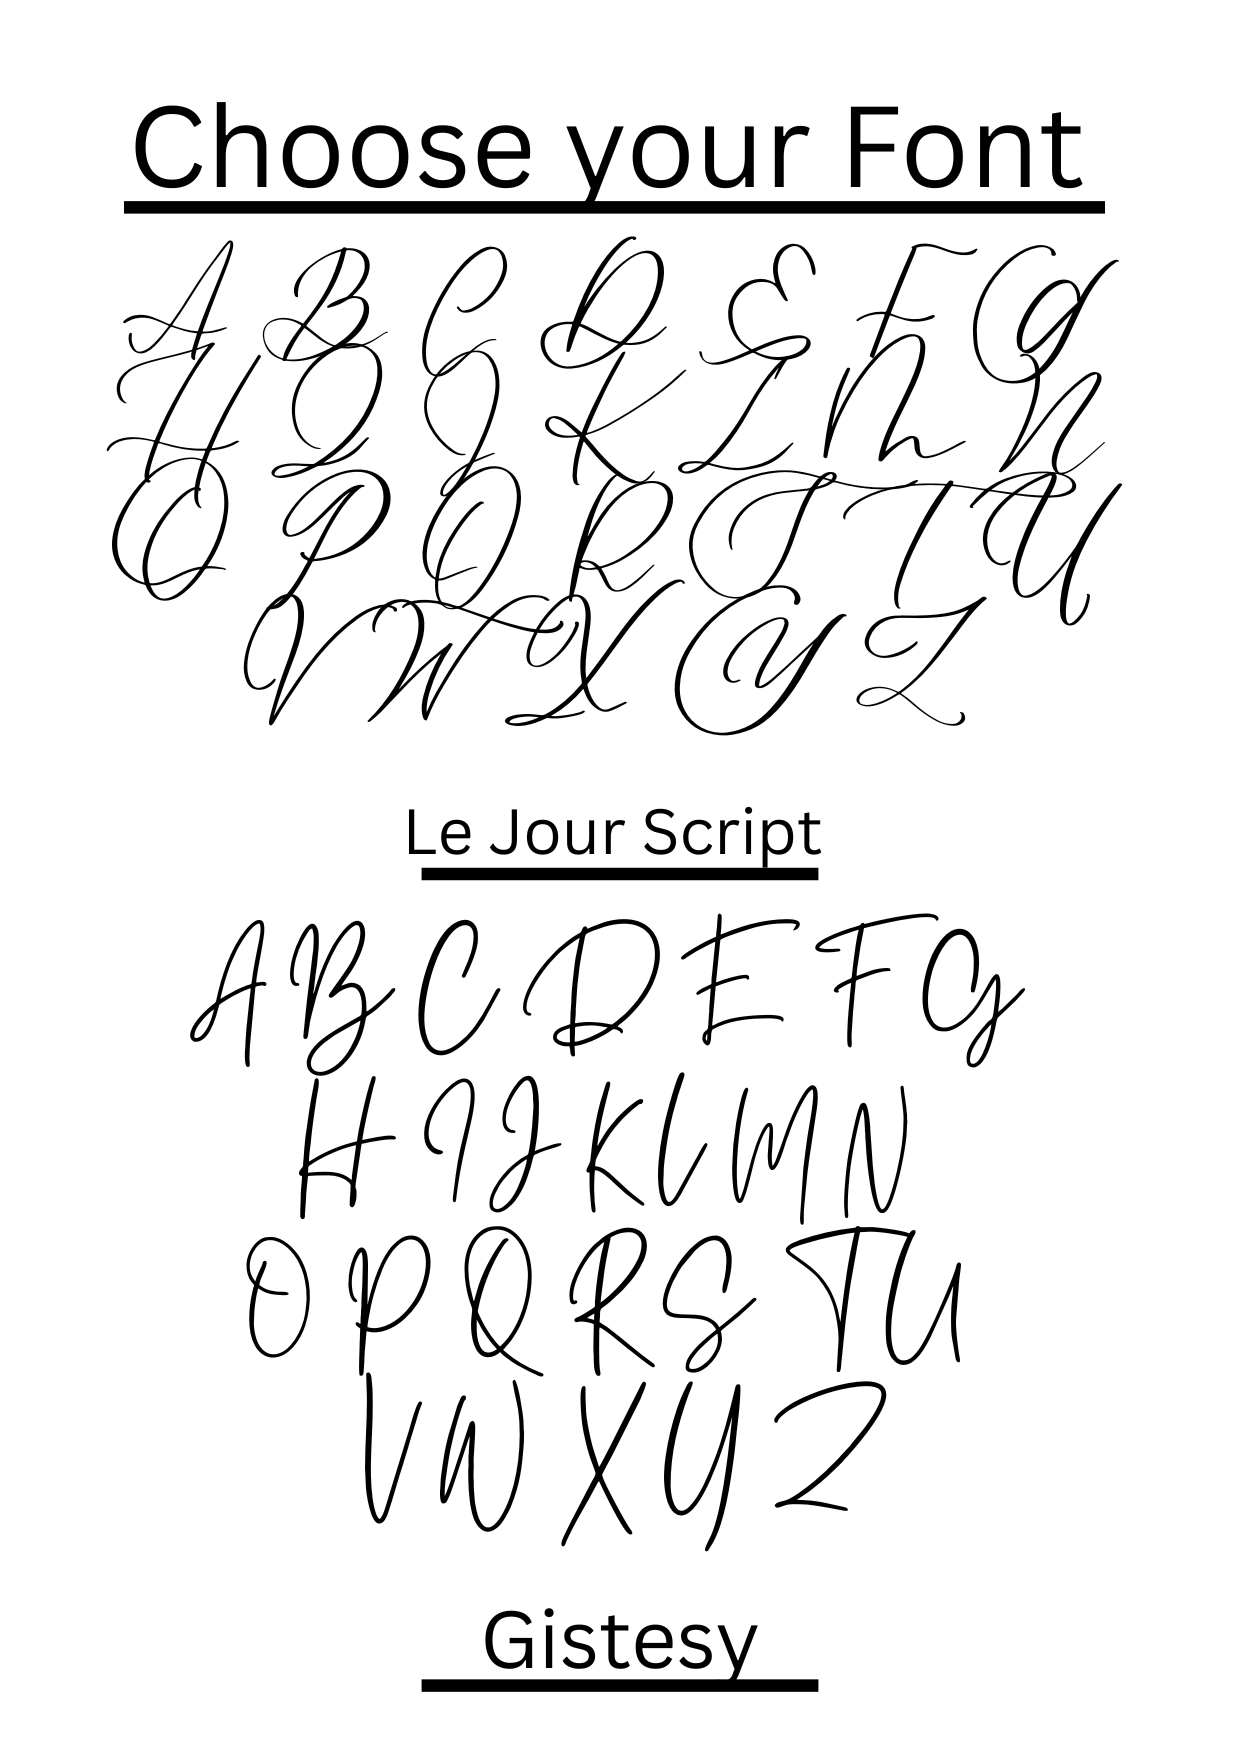 Choose your Font
A B C D E F G
H I J K L M N
O P Q R S T U
V W X Y Z
Le Jour Script
A B C D E F G
H I J K L M N
O P Q R S T U
V W X Y Z
Gistesy